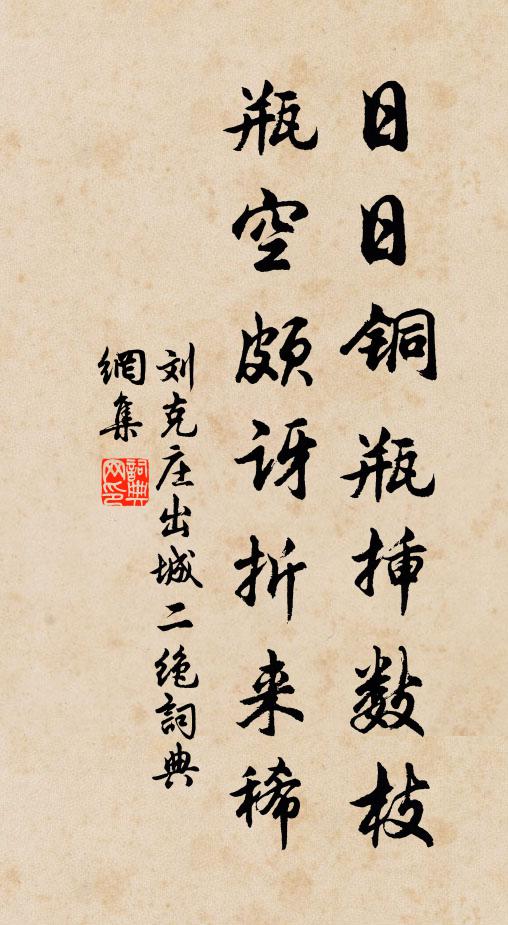 日日铜瓶插数枝
瓶空颇讶折来稀
刘克庄出城二绝詞典
網集
詞典网印